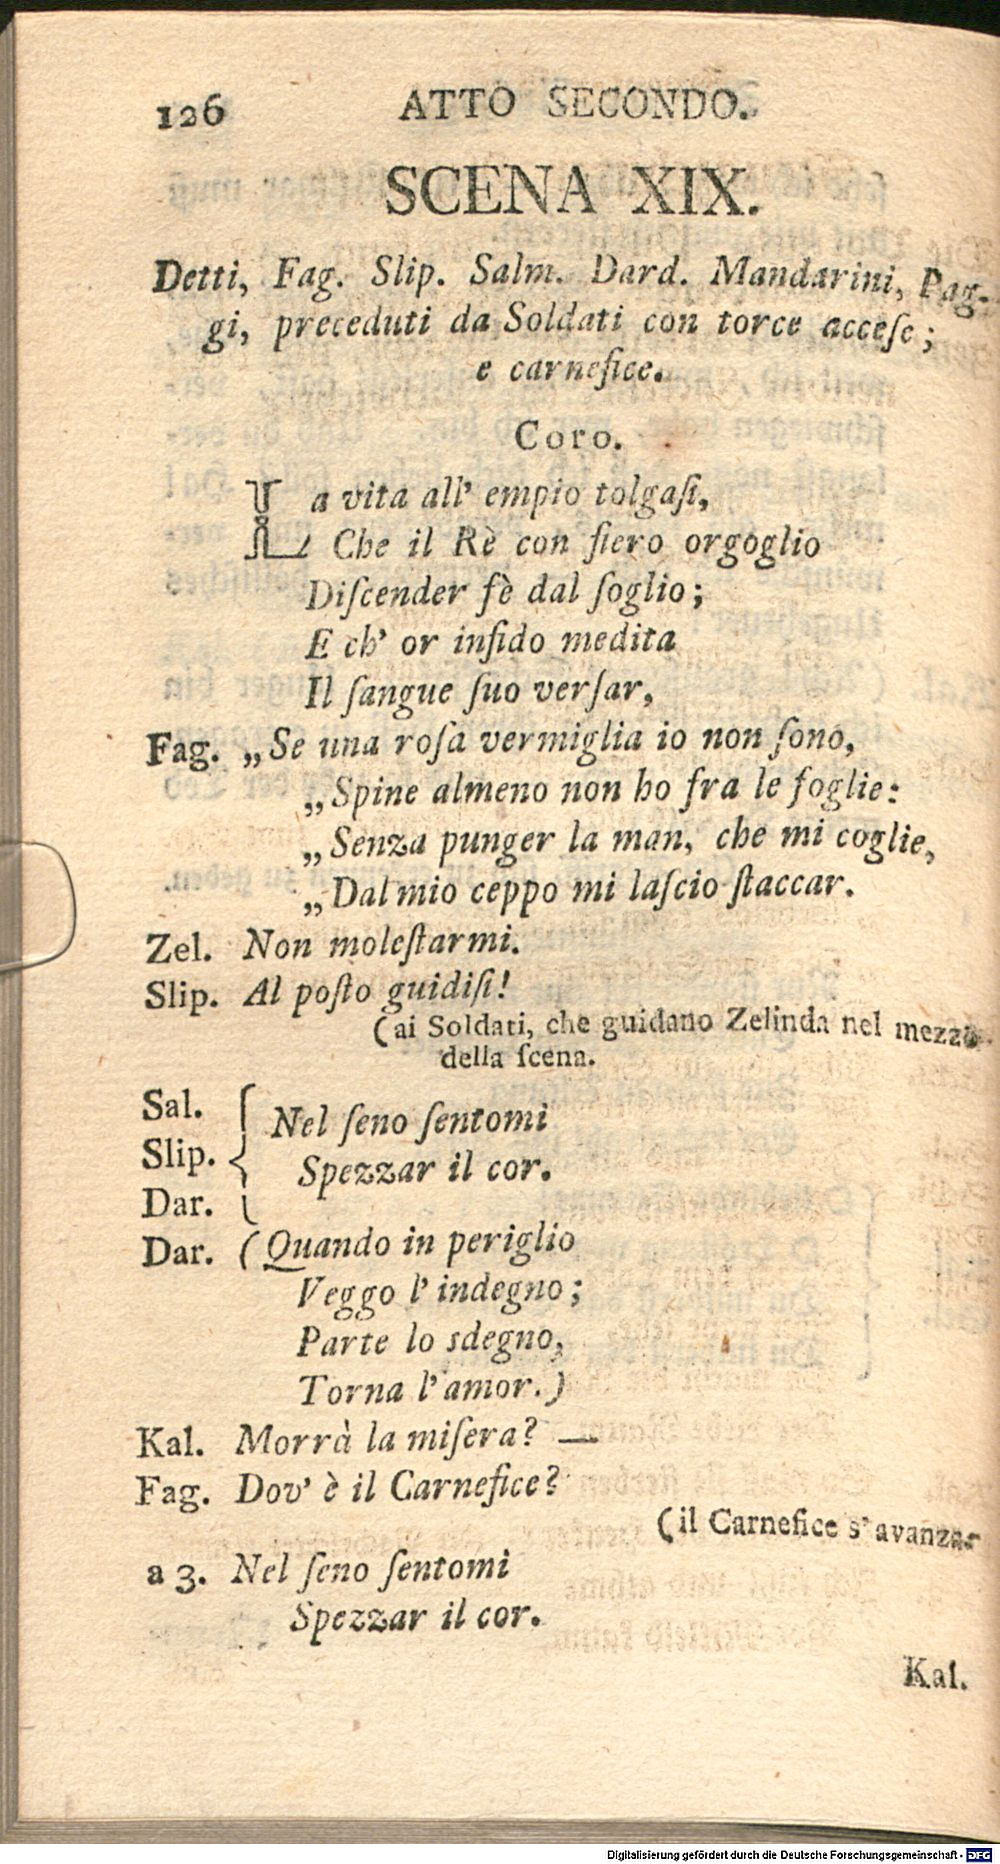 126 ATTO SECONDO.
SCENA XIX.
Detti, Fag. Slip. Salm. Dard. Mandarini, Pag-
gi, preceduti da Soldati con torce acceſe;
e carnefice.
Coro.
La vita all' empio tolgaſi,
Che il Rè con fiero orgoglio
Diſcender fè dal ſoglio;
E ch' or infido medita
Il ſangue ſuo verſar,
Fag. „Se una roſa vermiglia io non ſono,
„Spine almeno non ho fra le foglie:
„Senza punger la man, che mi coglie,
„Dal mio ceppo mi laſcio ſtaccar.
Zel. Non moleſtarmi.
Slip. Al poſto guidiſi!
(ai Soldati, che guidano Zelinda nel mezzo
della ſcena.
Sal.
Slip.
Dar.
Nel ſeno ſentomi
Spezzar il cor.
Dar. (Quando in periglio
Veggo l' indegno;
Parte lo sdegno,
Torna l' amor.)
Kal. Morrà la miſera? —
Fag. Dov' è il Carnefice?
(il Carnefice s' avanza.
a 3. Nel ſeno ſentomi
Spezzar il cor.
Kal.
Digitalisierung gefördert durch die Deutsche Forschungsgemeinschaft - DFG